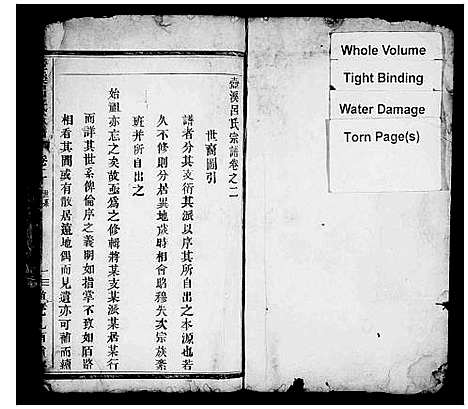 壺溪呂氏宗譜卷之二
世裔圖引
譜者分其支衍其派以序其所自出之本源也若
久不修則分居異地歲時相會昭穆失次宗族紊
班并所自出之
始祖亦忘之矣故亟爲之修輯將某支某派某居某行
而詳其世系俾倫序之義明如指掌不致如陌路
相看其間或有散居遠地偶而見遺亦可補而續
Whole Volume
Tight Binding
Water Damage
Torn Page(s)